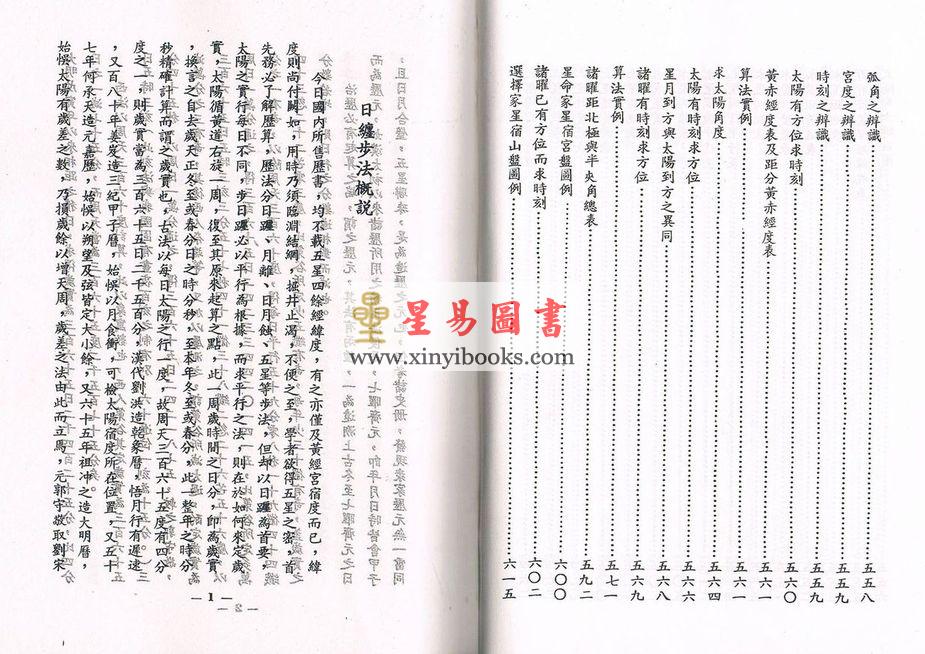 弧角之辨識……五五八
宮度之辨識……五五九
時刻之辨識……五五九
太陽有方位求時刻……五六〇
黃赤經度表及距分黃赤經度表……五六一
算法實例……五六一
求太陽角度……五六四
太陽有時刻求方位……五六六
星月到方與太陽到方之異同……五六八
諸曜有時刻求方位……五六八
算法實例……五七一
諸曜距北極與半夾角總表……五九二
星命家星宿宮盤圖例……六〇〇
諸曜已有方位而求時刻……六〇二
選擇家星宿山盤圖例……六一五
星易圖書
www.xinyibooks.com
日纏步法概說
今日國內所售歷書，均不載五星四餘經緯度，有之亦僅及黃經宮宿度而已，緯
度則尚付闕如，用時乃須臨淵結網，掘井止渴，不便之至，學者欲得五星之密，首
先務必了解歷算，歷法分日躔、月離、日月蝕、五星等步法，但却以日躔為首要，
太陽之實行每日不同，步日躔必以平行為根據，而求平行之法，則在於如何來定歲
實，太陽循黃道右旋一周，復至其原來起算之點，此一周歲時間之日分，即為歲實
，換言之自去歲天正冬至或春分日之時分秒，至本年冬至或春分，此一整年之時分
秒精確計算而謂之歲實也，古法以每日太陽之行一度，故周天三百六十五度有四分
度之一，則歲實當為三百六十五日二千五百分，漢代劉洪造乾象曆，悟月行有遲速
，又百八十年姜岌造三紀甲子曆，始悞以月食衝，可檢太陽宿度所在位置，又五十
七年何承天造元嘉歷，始悞以朔望及弦皆定大小餘，又六十五年祖冲之造大明曆，
始悞太陽有歲差之數，乃損歲餘以增天周，歲差之法由此而立焉，元郭守敬取劉宋
— 1 —